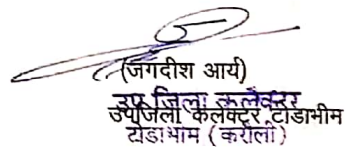 (जगदीश आर्य)
उप जिला कलेक्टर
उपजिला कलेक्टर, टोडाभीम
टोडाभीम (करौली)